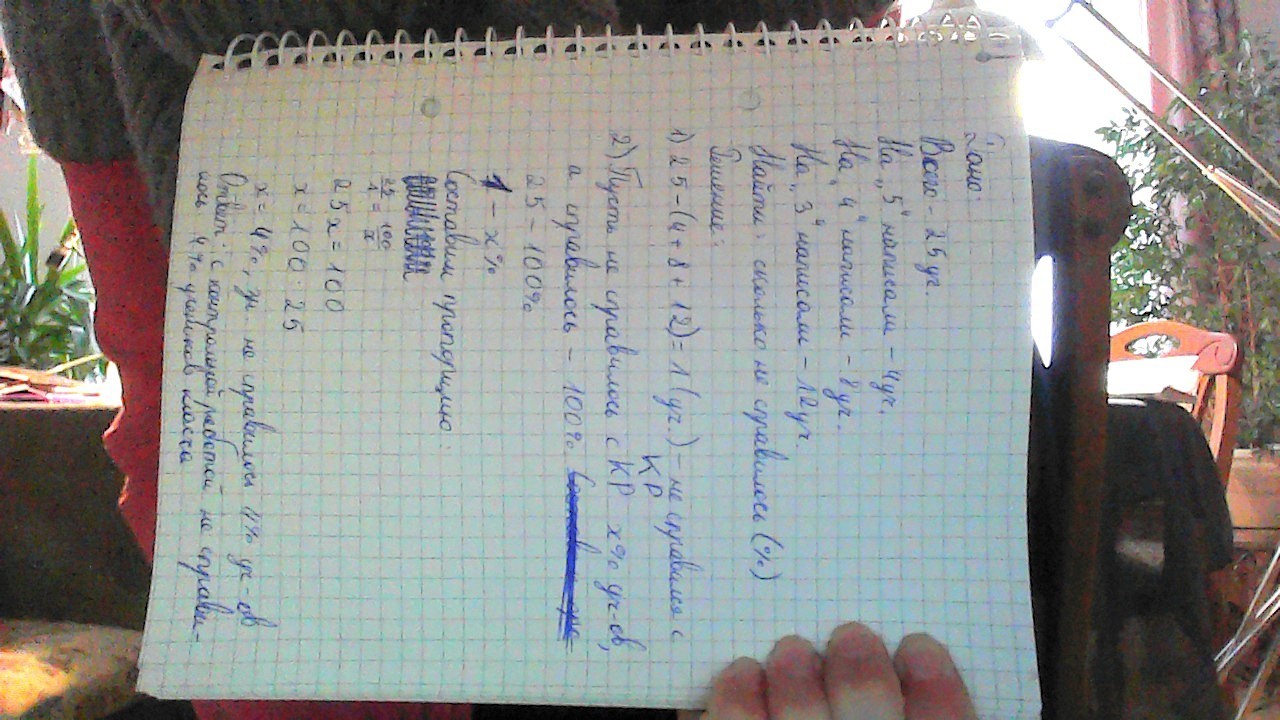 Дано:
Всего - 25 уч.
На „5" написали - 4уч.
На „4" написали - 8уч.
На „3" написали - 12уч.
Найти: сколько не справилось (%)
Решение:
1) 25-(4+8+12)=1(уч.) - не справился с
КР
2) Пусть не справилось с КР x% уч-ов,
а справилось - 100%
25 - 100%
1 - x%
Составим пропорцию:
25/1 = 100/x
25x = 100
x = 100 : 25
x = 4%, уч. не справилось 4% уч-ов
Ответ: с контрольной работой не справи-
лось 4% учеников класса